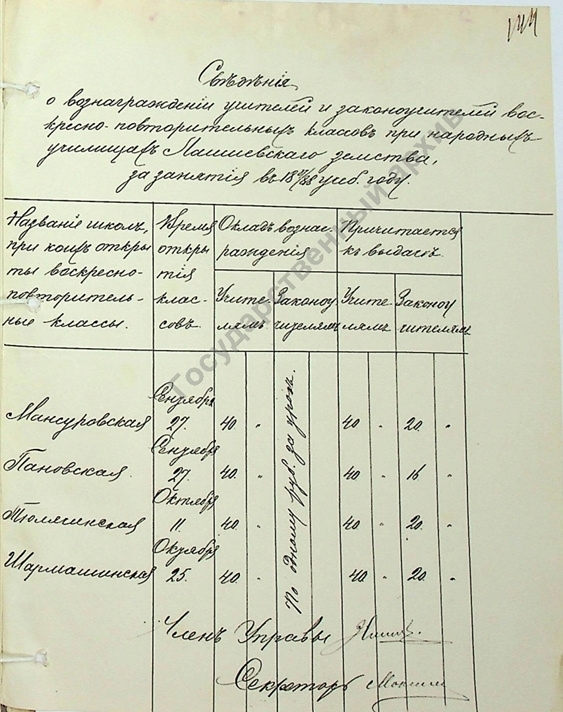 Свѣдѣнія
о вознагражденіи учителей и законоучителей вос-
кресно-повторительныхъ классовъ при народныхъ
училищахъ Лаишевскаго земства,
за занятія въ 18 87/88 учеб. году.
Названіе школъ, при коихъ откры ты воскресно-повторитель-ные классы.
Время откры тія клас-совъ.
Окладъ вознаг-ражденія
Причитается къ выдачѣ.
Учите-лямъ
Законоу чителямъ
Учите-лямъ
Законоу чителямъ
Мансуровская Сентября 27. 40 " 40 " 20. "
Пановская. Сентября 27. 40. " 40 " 16 "
Тюлячинская Октября 11. 40 " 40 " 20. "
Шармашинская Октября 25. 40 " 40 " 20. "
По одному руб. за урокъ.
Членъ Управы
Секретарь
Государственный архив